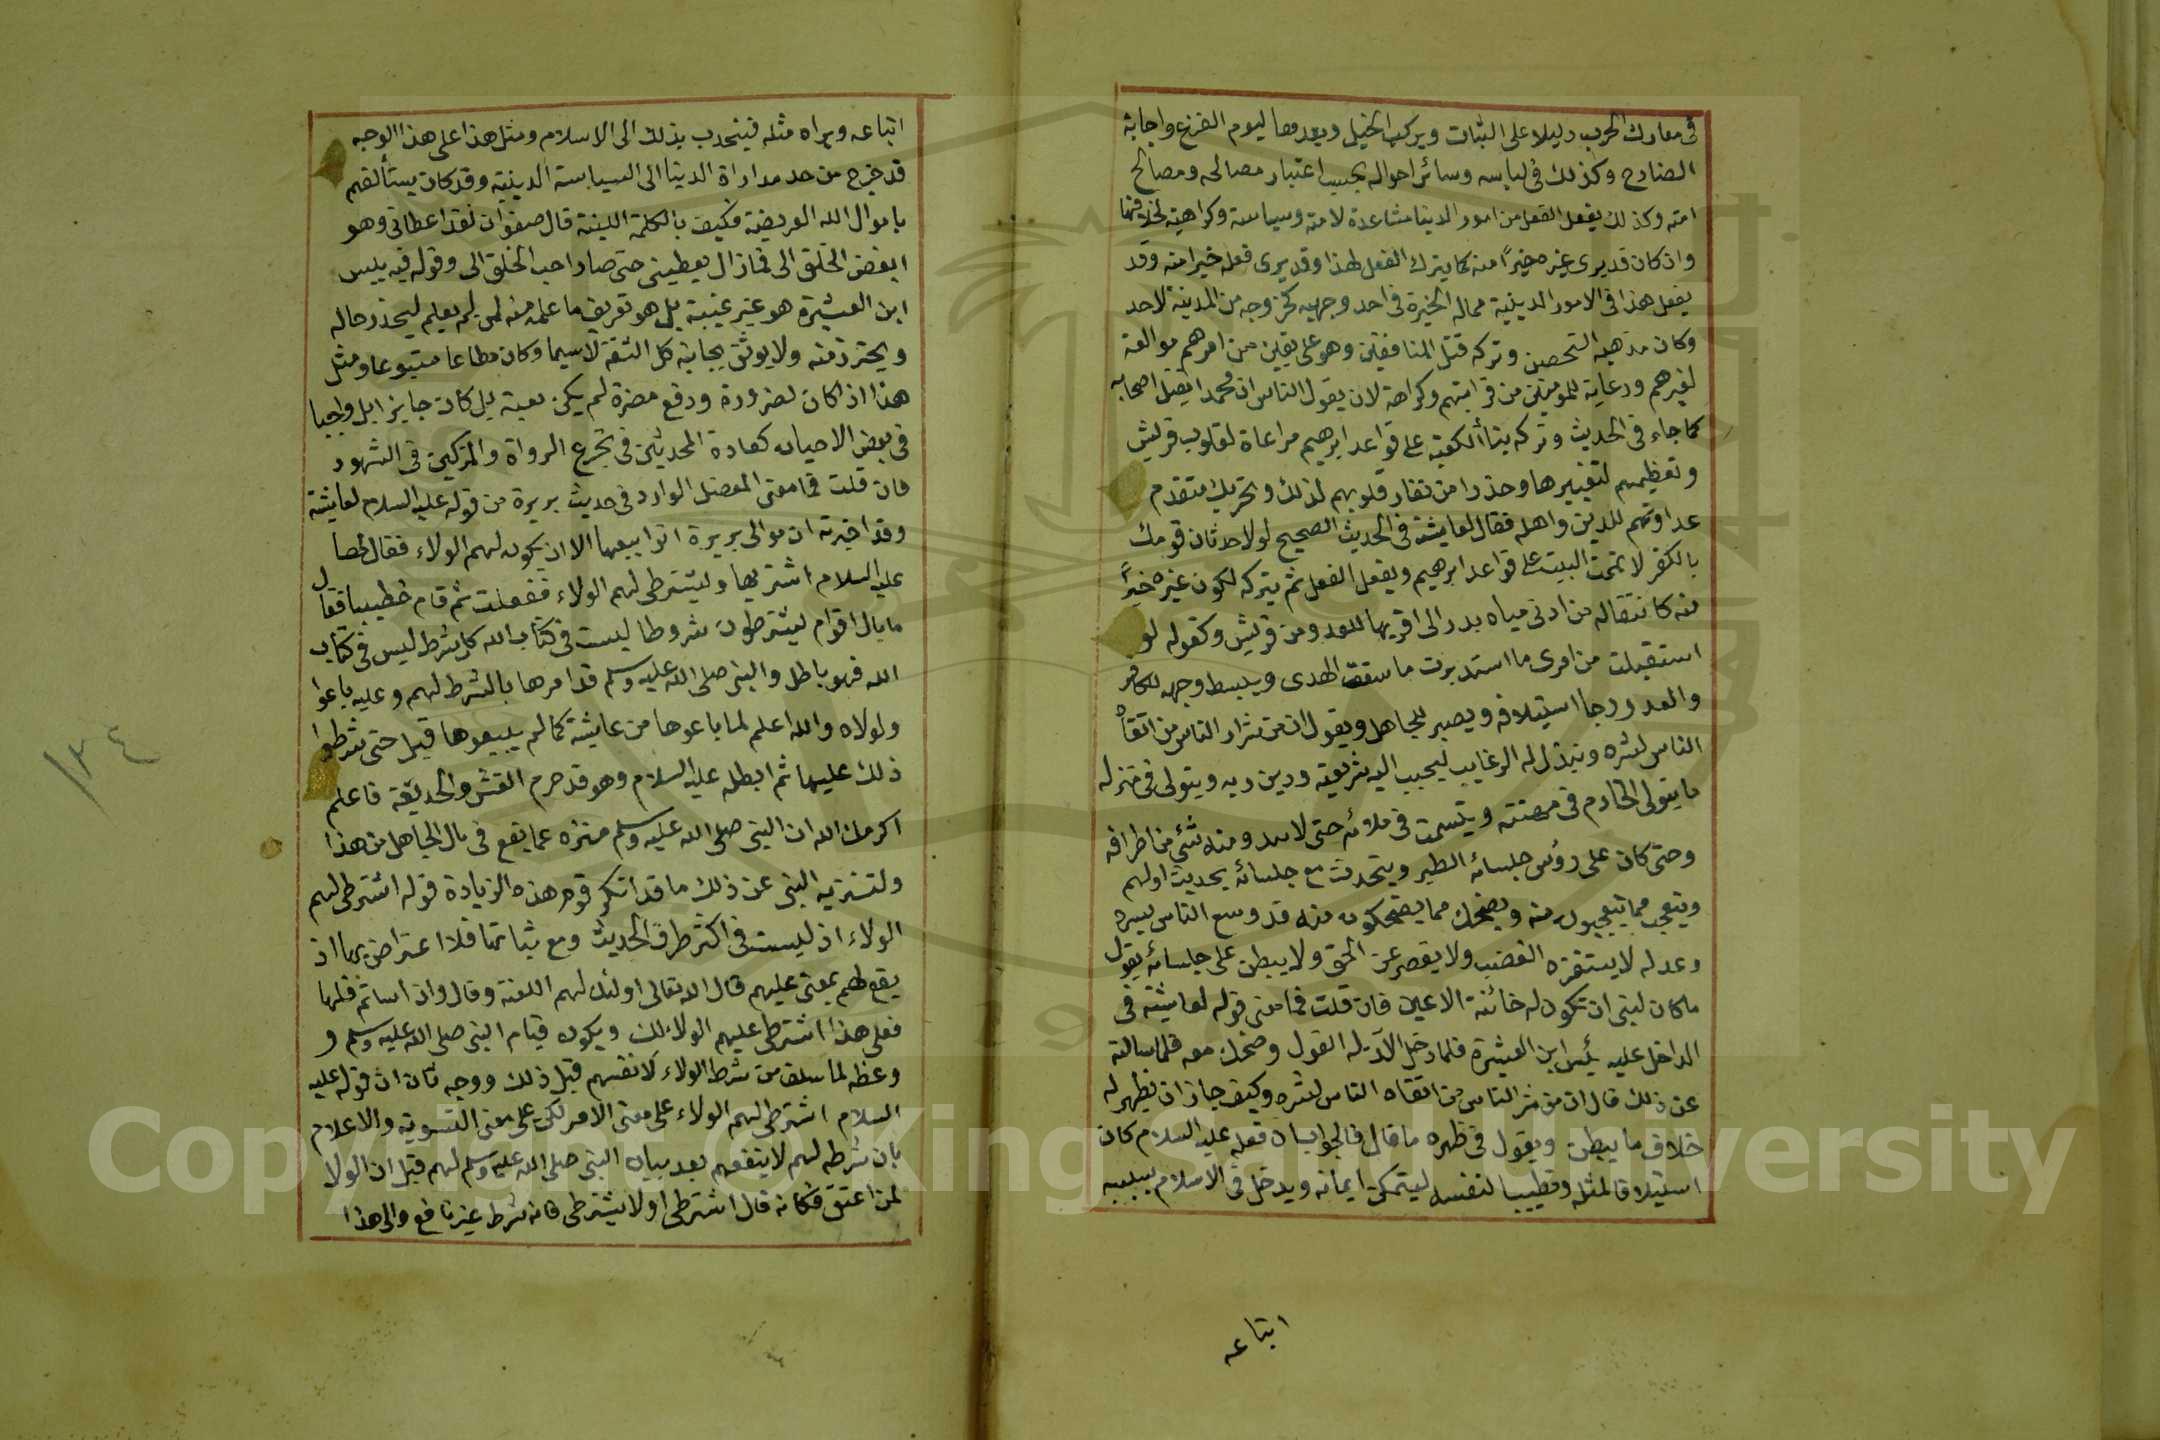 فى معارك الحرب دليلا على الثبات ويركب الخيل ويعدها ليوم الفزع واجابة
الصارخ وكذلك فى لباسه وسائر احواله بحسب اعتبار مصالحه ومصالح
امته وكذلك يفعل الفعل من امور الدنيا مساعدة لامته وسياسة وكراهية لخلافها
وان كان قد يرى غيره خيراً منه كما يترك الفعل لهذا وقد يرى فعله خيرا منه وقد
يفعل هذا فى الامور الدينية مماله الخيرة فى احد وجهيه كخروجه من المدينة لاحد
وكان مذهبه التحصن وتركه قتل المنافقين وهو على يقين من امرهم موالفة
لغيرهم ورعاية للمومنين من قرابتهم وكراهة لان يقول الناس ان محمدا يقتل اصحابه
كما جاء فى الحديث وتركه بناء الكعبة على قواعد ابرهيم مراعاة لقلوب قريش
وتعظيمهم لتغييرها وحذرا من نفار قلوبهم لذلك وتحريك متقدم
عداوتهم للدين واهله فقال لعايشة فى الحديث الصحيح لولا حدثان قومك
بالكفر لاتممت البيت على قواعد ابرهيم ويفعل الفعل ثم يتركه لكون غيره خيراً
منه كانتقاله من ادنى مياه بدر الى اقربها للعدو من قريش وكقوله لو
استقبلت من امرى ما استدبرت ما سقت الهدى ويبسط وجهه للكافر
والعدو رجا استيلافه ويصبر للجاهل ويقول ان من شرار الناس من اتقاه
الناس لشره ويبذل له الرغايب ليحبب اليه شريعته ودين ربه ويتولى فى منزله
ما يتولى الخادم فى مهنته ويتسمت فى ملائه حتى لا يبدو منه شئ من اطرافه
وحتى كان على رؤس جلسائه الطير ويتحدث مع جلسائه بحديث اولهم
ويتعجب مما يتعجبون منه ويضحك مما يضحكون منه قد وسع الناس بشره
وعدله لا يستفزه الغضب ولا يقصر عن الحق ولا يبطن على جلسائه يقول
ما كان لنبى ان تكون له خائنة الاعين فان قلت فما معنى قوله لعايشة فى
الداخل عليه بئس ابن العشيرة فلما دخل الان له القول وضحك معه فلما سالته
عن ذلك قال ان من شر الناس من اتقاه الناس لشره وكيف جاز ان يظهر له
خلاف ما يبطن ويقول فى ظهره ما قال فالجواب ان فعله عليه السلام كان
استيلافا لمثله وتطييبا لنفسه ليتمكن ايمانه ويدخل فى الاسلام بسببه
اتباعه
اتباعه ويراه مثله فينجدب بذلك الى الاسلام ومثل هذا على هذا الوجه
قد خرج من حد مداراة الدنيا الى السياسة الدينية وقد كان يستألفهم
باموال الله العريضة فكيف بالكلمة اللينة قال صفوان لقد اعطانى وهو
ابغض الخلق الى فمازال يعطينى حتى صار احب الخلق الى وقوله فيه بيس
ابن العشيرة هو غير غيبة بل هو تعريف ما علمه منه لمن لم يعلم ليحذر حاله
ويحترز منه ولا يوثق بجانبه كل الثقة لا سيما وكان مطاعا متبوعا ومثل
هذا اذا كان لضرورة ودفع مضرة لم يكن بغيبة بل كان جايزا بل واجبا
فى بعض الاحيان كعادة المحدثين فى تجرع الرواة والمزكين فى الشهود
فان قلت فما معنى المعضل الوارد فى حديث بريرة من قوله عليه السلام لعايشة
وقد اخبرته ان موالى بريرة ابوا بيعها الا ان يكون لهم الولاء فقال لها
عليه السلام اشتريها واشترطى لهم الولاء ففعلت ثم قام خطيبا فقال
ما بال اقوام يشترطون شروطا ليست فى كتاب الله كل شرط ليس فى كتاب
الله فهو باطل والنبى صلى الله عليه وسلم قد امرها بالشرط لهم وعليه باعوا
ولولاه والله اعلم لما باعوها من عايشة كما لم يبيعوها قبل حتى شرطوا
ذلك عليها ثم ابطله عليه السلام وهو قد حرم الغش والخديعة فاعلم
اكرمك الله ان النبى صلى الله عليه وسلم منزه عما يقع فى بال الجاهل من هذا
ولتنزيه النبى عن ذلك ما قد انكر قوم هذه الزيادة قوله اشترطى لهم
الولاء اذ ليست فى اكثر طرق الحديث ومع ثباتها فلا اعتراض بها اذ
يقع لهم بمعنى عليهم قال الله تعالى اولئك لهم اللعنة وقال وان اساتم فلها
فعلى هذا اشترطى عليهم الولاء لك ويكون قيام النبى صلى الله عليه وسلم و
وعظه لما سلف من شرط الولاء لانفسهم قبل ذلك ووجه ثان ان قوله عليه
السلام اشترطى لهم الولاء على معنى الامر لكن على معنى التسوية والاعلام
بان شرطه لهم لا ينفعهم بعد بيان النبى صلى الله عليه وسلم لهم قبل ان الولا
لمن اعتق فكانه قال اشترطى اولا تشترطى فانه شرط غير نافع والى هذا
١٣٤
Copyright © King Saud University